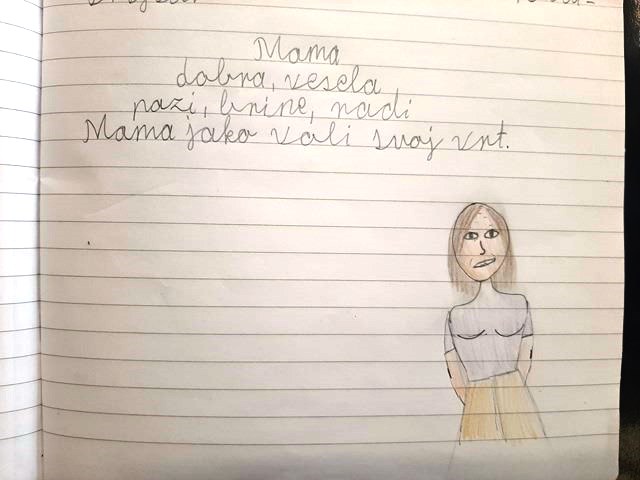 Mama
dobra, vesela
pazi, brine, radi
Mama jako voli svoj vrt.